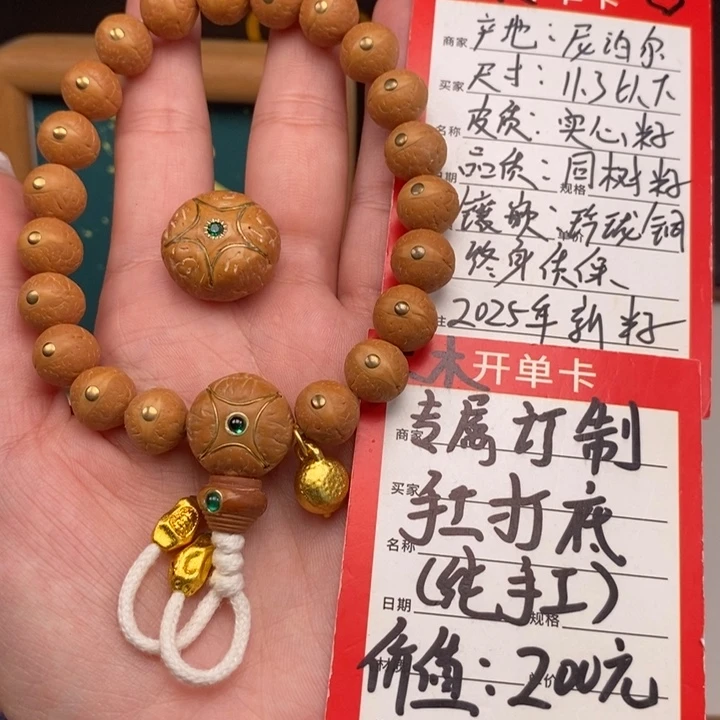 商家 产地：尼泊尔
买家 尺寸：11.3以下
名称 皮质：实心籽
日期 品质：同树籽 规格
镶嵌：玲珑/铜 单价
终身售保
注 2025年新籽
木 开单卡
商家 专属订制
买家 手工打底
名称 (纯手工)
日期 规格
价值：200元